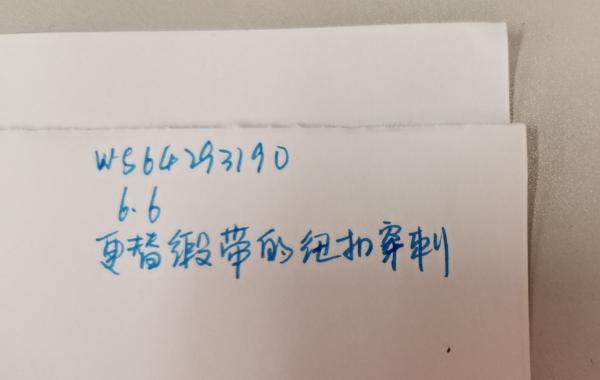 WS64293190
6.6
更替缎带的纽扣穿刺